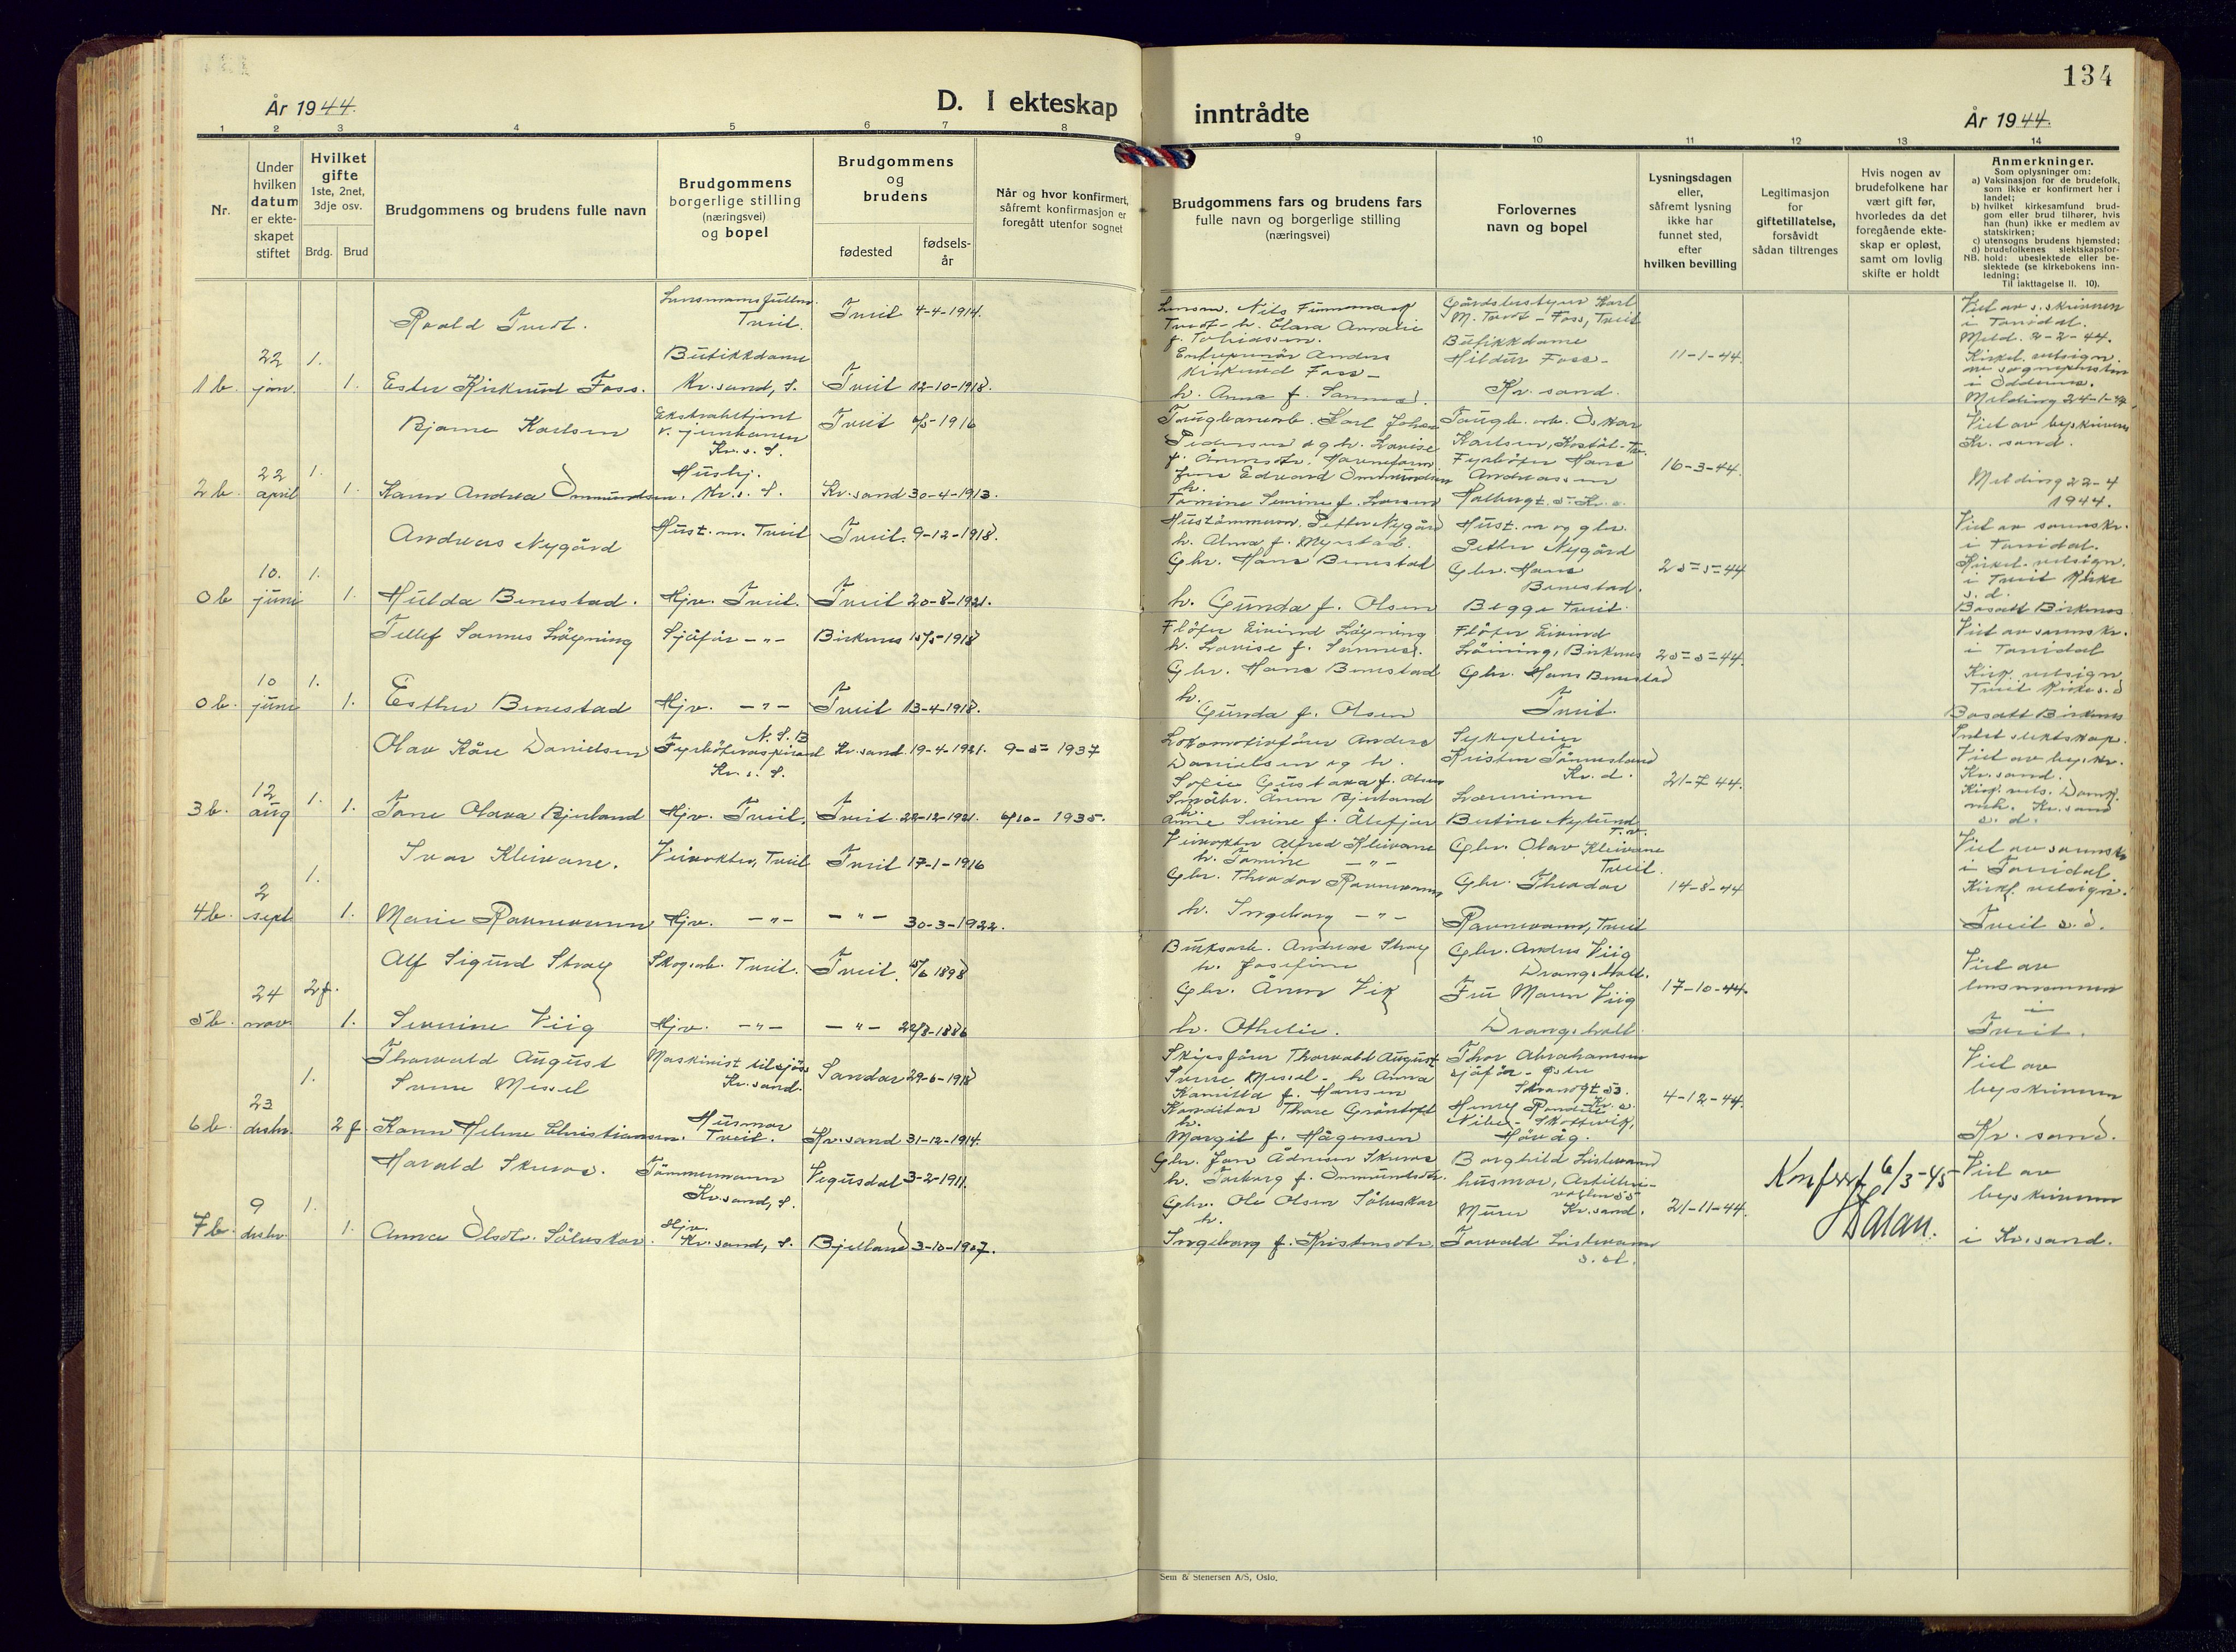 134
År 1944.
D. I ekteskap inntrådte
År 1944.
1 2 3 4 5 6 7 8 9 10 11 12 13 14
Nr.
Under hvilken datum er ekteskapet stiftet
Hvilket gifte
1ste, 2net, 3dje osv.
Brdg. Brud
Brudgommens og brudens fulle navn
Brudgommens borgerlige stilling (næringsvei) og bopel
Brudgommens og brudens
fødested
fødsels-år
Når og hvor konfirmert, såfremt konfirmasjon er foregått utenfor sognet
Brudgommens fars og brudens fars fulle navn og borgerlige stilling (næringsvei)
Forlovernes navn og bopel
Lysningsdagen eller, såfremt lysning ikke har funnet sted, efter hvilken bevilling
Legitimasjon for giftetillatelse, forsåvidt sådan tiltrenges
Hvis nogen av brudefolkene har vært gift før, hvorledes da det foregående ekteskap er opløst, samt om lovlig skifte er holdt
Anmerkninger.
Som oplysninger om:
a) Vaksinasjon for de brudefolk, som ikke er konfirmert her i landet;
b) hvilket kirkesamfund brudgom eller brud tilhører, hvis han (hun) ikke er medlem av statskirken;
c) utensogns brudens hjemsted;
d) brudefolkenes slektskapsforhold: ubeslektede eller beslektede (se kirkebokens innledning;
NB. Til iakttagelse II. 10).
Roald Tvedt. Tveit. Tveit 4-4-1914.
Lensm. Nils Finnmark Tvedt - h. Clara Amalie f. Tobiassen.
Gårdsbestyrer Karl M. Tvedt - Foss, Tveit
Butikkdame Hildur Foss - Kr. sand.
1 b. 22 jan. 1. 1. Ester Kirkund Foss. Butikkdame Kr.sand, S. Tveit 12-10-1918.
Entreprenør Anders Kirkund Foss - h. Anna f. Sannes.
11-1-44.
Viet av s.skriveren i Torridal. Meld. 2-2-44. Kirkel. velsign.
i Oddernes. Melding 24-1-44
Bjarne Karlsen Kr. s. S. Tveit 6/5-1916
Karl Johan Pedersen og h. Lovise
Oskar Karlsen,
Fyrbøter Hans Andreassen
2 b. 22 april 1. 1. Karen Andrea Ommundsen. Husbj. Kr. s. S. Kr.sand 30-4-1913.
Jens Edvard Ommundsen h. Tomine Serine f. Larsen
16-3-44.
Viet av byskriveren Kr. sand.
Melding 22-4 1944.
Andreas Nygård Hust. m. Tveit Tveit. 9-12-1918.
Hustømmerm. Petter Nygård h. Alma f. Myrstad.
Hust. m og gbr. Petter Nygård
Gbr. Hans Benestad. Begge Tveit.
0 b 10. juni 1. 1. Hulda Benestad. Hjv. Tveit. Tveit 20-8-1921.
Gbr. Hans Benestad h. Gunda f. Olsen
25-5-44
Viet av sorenskr. i Torridal. Kirkel. velsign. i Tveit kirke s. d. Bosatt Birkenes
Tellef Sannes Løyning Sjåfør -"- Birkenes 15/5-1918
Fløter Eivind Løyning h. Lovise f. Sannes.
Fløter Eivind Løining, Birkenes
Gbr. Hans Benestad Tveit.
0 b. 10 juni 1. 1. Esther Benestad Hjv. -"- Tveit 13-4-1918.
Gbr. Hans Benestad h. Gunda f. Olsen
25-5-44.
Viet av sorenskr. i Torridal Kirk. velsign Tveit kirke s. d Bosatt Birkenes Intet slektskap.
Olav Kåre Danielsen N.S.B Fyrbøteraspirant Kr. s. S. Kr.sand. 19-4-1921. 9-5- 1937
Lokomotivfører Anders Danielsen og h. Sofie Gustava f. Olsen
Sykepleier Kirsten Tønnesland Kr. s.
3 b. 12 aug 1. 1. Tone Olava Bjerland Hjv. Tveit. Tveit. 22-12-1921. 6/10- 1935.
Småbr. Ånen Bjerland h. Anne Serine f. Ålefjær
Lærerinne Bertine Nylund
21-7 44.
Viet av bys.kr. Kr.sand. Kirk. vels. Domk. Kr. sand s. d.
Ivar Kleivane. Veivokter, Tveit Tveit 17-1-1916
Veivokter Alfred Kleivane h. Tomine -"-
Gbr. Olav Kleivane Tveit.
4 b. 2 sept 1. 1. Marie Ravnevann Hjv. -"- -"- 30-3-1922.
Gbr. Theodor Ravnevann h. Ingeborg -"-
Gbr. Theodor Ravnevann, Tveit
14-8-44
Viet av sorenskr i Torridal. Kirk. velsign. Tveit s. d.
Alf Sigurd Stray Skog.arb. Tveit. Tveit. 15/6 1898
Andreas Stray h. Josefine
Gbr. Anders Viig Drangsholt.
5 b. 24 nov. 2f. 1. Severine Viig Hjv. -"- -"- 22/8-1886
Gbr. Ånen Vik h. Othelie.
Fru Maren Viig Drangsholt
17-10-44.
Viet av lensmannen i Tveit.
Thorvald August Sverre Missel Maskinist tilsjøs Kr.sand. Sandar 29-6-1918
Skipsfører Thorvald August Sverre Missel - h Anna Kamilla f. Hansen
Thor Abrahamsen sjåfør - Østre Strandgt 53. Kr. s.
6 b. 23 desbr. 1. 2 f. Karen Helene Christiansen. Husmor Tveit. Kr.sand 31-12-1914.
Konditor Thore Grøntoft h. Margit f. Hågensen
Høvåg.
4-12-44.
Viet av byskriveren Kr. sand.
Harald Skuros. Tømmermann Kr.sand, S. Vegusdal 3-2-1911.
h. Torborg f. Ommundsdtr.
Borghild Listevand husmor, Artilleri-vollen 55
7 b. 9 desbr. 1. 1. Anna Olsdtr. Sølvskar. Hjv. Kr.sand, S. Bjelland 3-10-1907.
Gbr. Ole Olsen Sølvskar h. Ingeborg f. Kristensdtr.
Murer Kr.sand. Torvald Listevand s. st.
21-11-44.
Konfert 6/3-45
Viet av byskriveren i Kr.sand.
Sem & Stenersen A/S, Oslo.